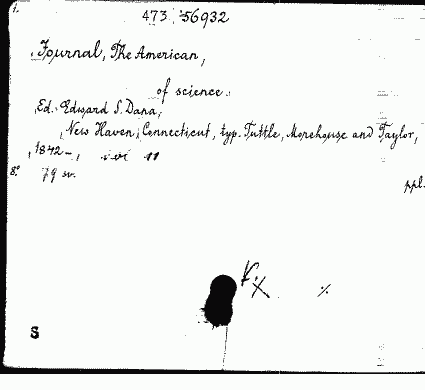 1.
473 56932
Journal, The American,
of science.
Ed. Edward S. Dana,
New Haven, Connecticut, typ. Tuttle, Morehouse and Taylor,
1842-,
8° 79 sv. ppl.
K.
X %
S